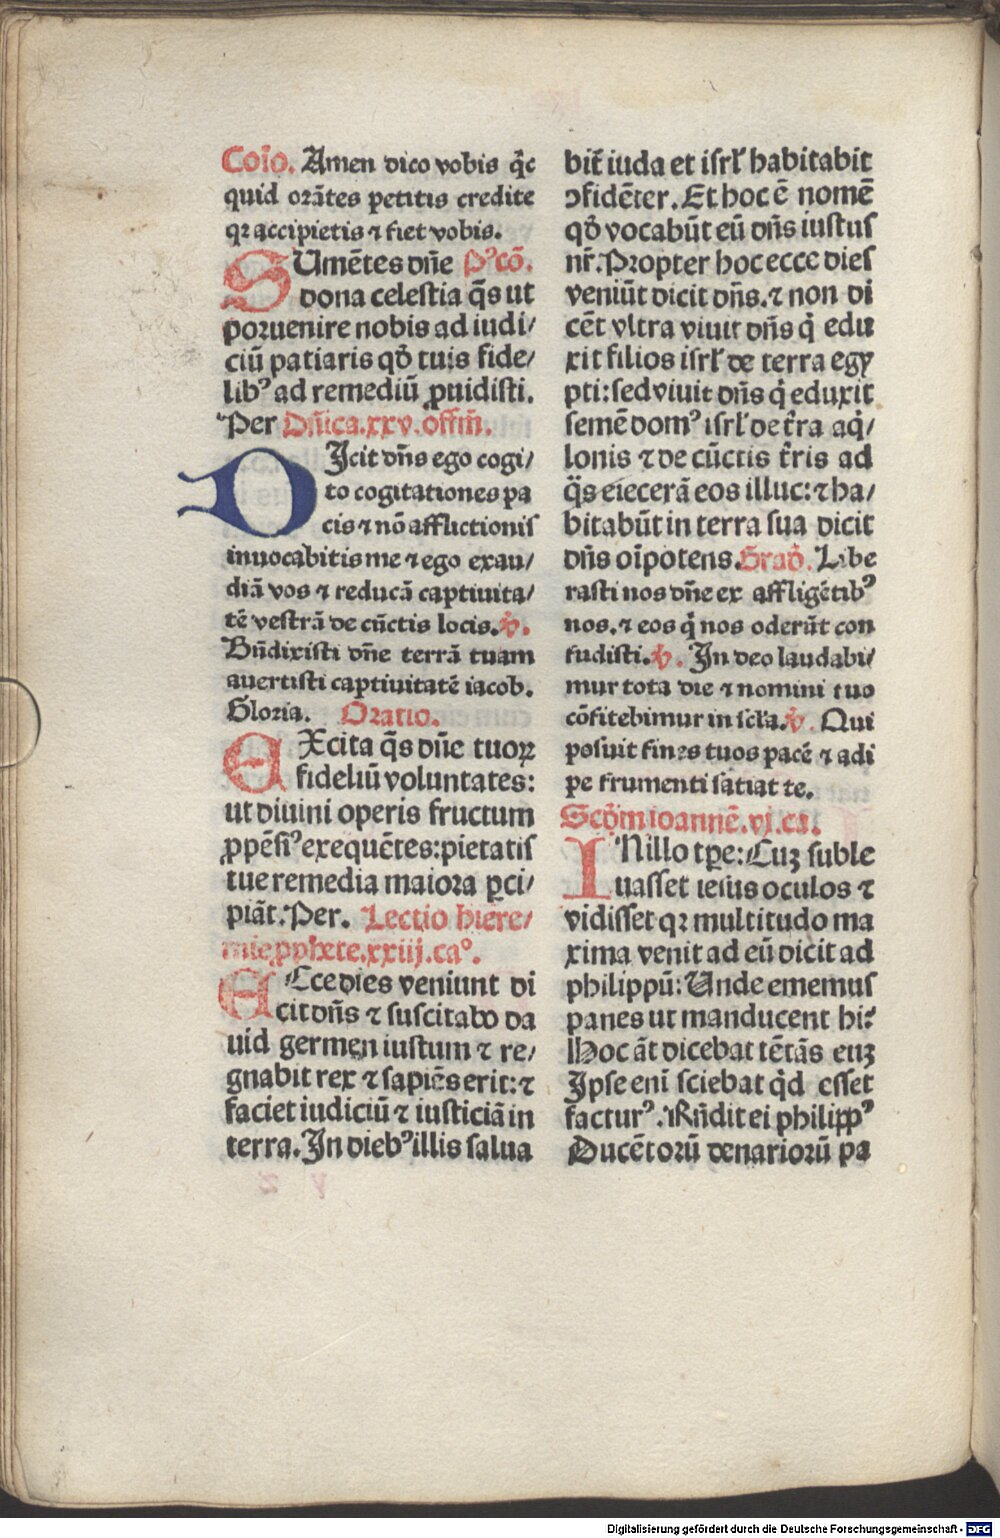 Coīo. Amen dico vobis q̄c
quid orātes petitis credite
qꝛ accipietis ⁊ fiet vobis.
SUmētes dn̄e P'cō.
dona celestia q̄s ut
poruenire nobis ad iudi/
ciū patiaris qd̄ tuis fide/
lib' ad remediū ꝓuidisti.
Per Dn̄ica.xxv.offm̄.
DIcit dn̄s ego cogi/
to cogitationes pa
cis ⁊ nō afflictionis
inuocabitis me ⁊ ego exau/
diā vos ⁊ reducā captiuita/
tē vestrā de cūctis locis. ℣.
Bn̄dixisti dn̄e terrā tuam
auertisti captiuitatē iacob.
Gloria. Oratio.
EXcita q̄s dn̄e tuoꝝ
fideliū voluntates:
ut diuini operis fructum
ꝓpēsi' exequētes: pietatis
tue remedia maiora ꝑci/
piāt. Per. Lectio hiere/
mie ꝓphete.xxiij.ca°.
ECce dies veniunt di
cit dn̄s ⁊ suscitabo da
uid germen iustum ⁊ re/
gnabit rex ⁊ sapiēs erit: ⁊
faciet iudiciū ⁊ iusticiā in
terra. In dieb' illis salua
bit̄ iuda et isrl' habitabit
ꝯfidēter. Et hoc ē nomē
qd̄ vocabūt eū dn̄s iustus
nr̄. Propter hoc ecce dies
veniūt dicit dn̄s. ⁊ non di
cēt vltra viuit dn̄s q̄ edu
xit filios isrl' de terra egy
pti: sed viuit dn̄s q̄ eduxit
semē dom' isrl' de t̄ra aq̄/
lonis ⁊ de cūctis t̄ris ad
q̄s eiecerā eos illuc: ⁊ ha/
bitabūt in terra sua dicit
dn̄s oīpotens. Grad̄. Libe
rasti nos dn̄e ex affligētib'
nos. ⁊ eos q̄ nos oderūt con
fudisti. ℣. In deo laudabi/
mur tota die ⁊ nomini tuo
cōfitebimur in scl'a. ℣. Qui
posuit fines tuos pacē ⁊ adi
pe frumenti satiat te.
Scd̄m ioannē.vj.ca.
INillo tꝑe: Cuꝫ suble
uasset iesus oculos ⁊
vidisset qꝛ multitudo ma
xima venit ad eū dicit ad
philippū: Unde ememus
panes ut manducent hi?
Hoc āt dicebat tētās euꝫ
Ipse enī sciebat qd̄ esset
factur'. Rn̄dit ei philipp'
Ducētorū denariorū pa
Digitalisierung gefördert durch die Deutsche Forschungsgemeinschaft - DFG